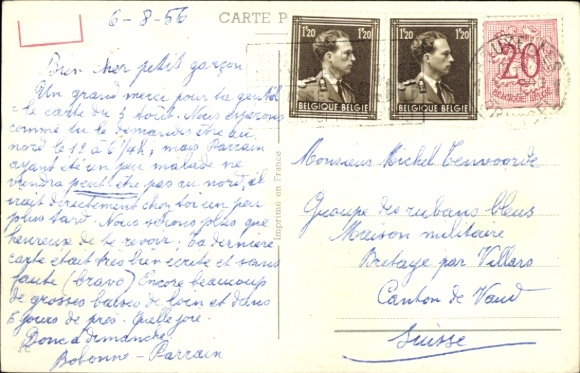 6-8-56
CARTE P
Bien cher petit garçon
Un grand merci pour ta gentil-
le carte du 3 août. Nous serons
comme tu le demandes être au
nord le 12 à 6 1/4h, mais Parrain
ayant été un peu malade ne
viendra peut-être pas au nord, il
irait directement chez toi un peu
plus tard. Nous serons plus que
heureuse de te revoir; ta dernière
carte était très bien écrite et sans
faute (bravo) Encore beaucoup
de grosses baises de loin et dans
6 jours de près. Quelle joie.
Donc à dimanche
Bobonne - Parrain
Imprimé en France
1F20
1F20
BELGIQUE BELGIE
BELGIQUE BELGIE
20
Monsieur Michel Tenvoorde
Groupe des rubans bleus
Maison militaire
Bretaye par Villars
Canton de Vaud
Suisse